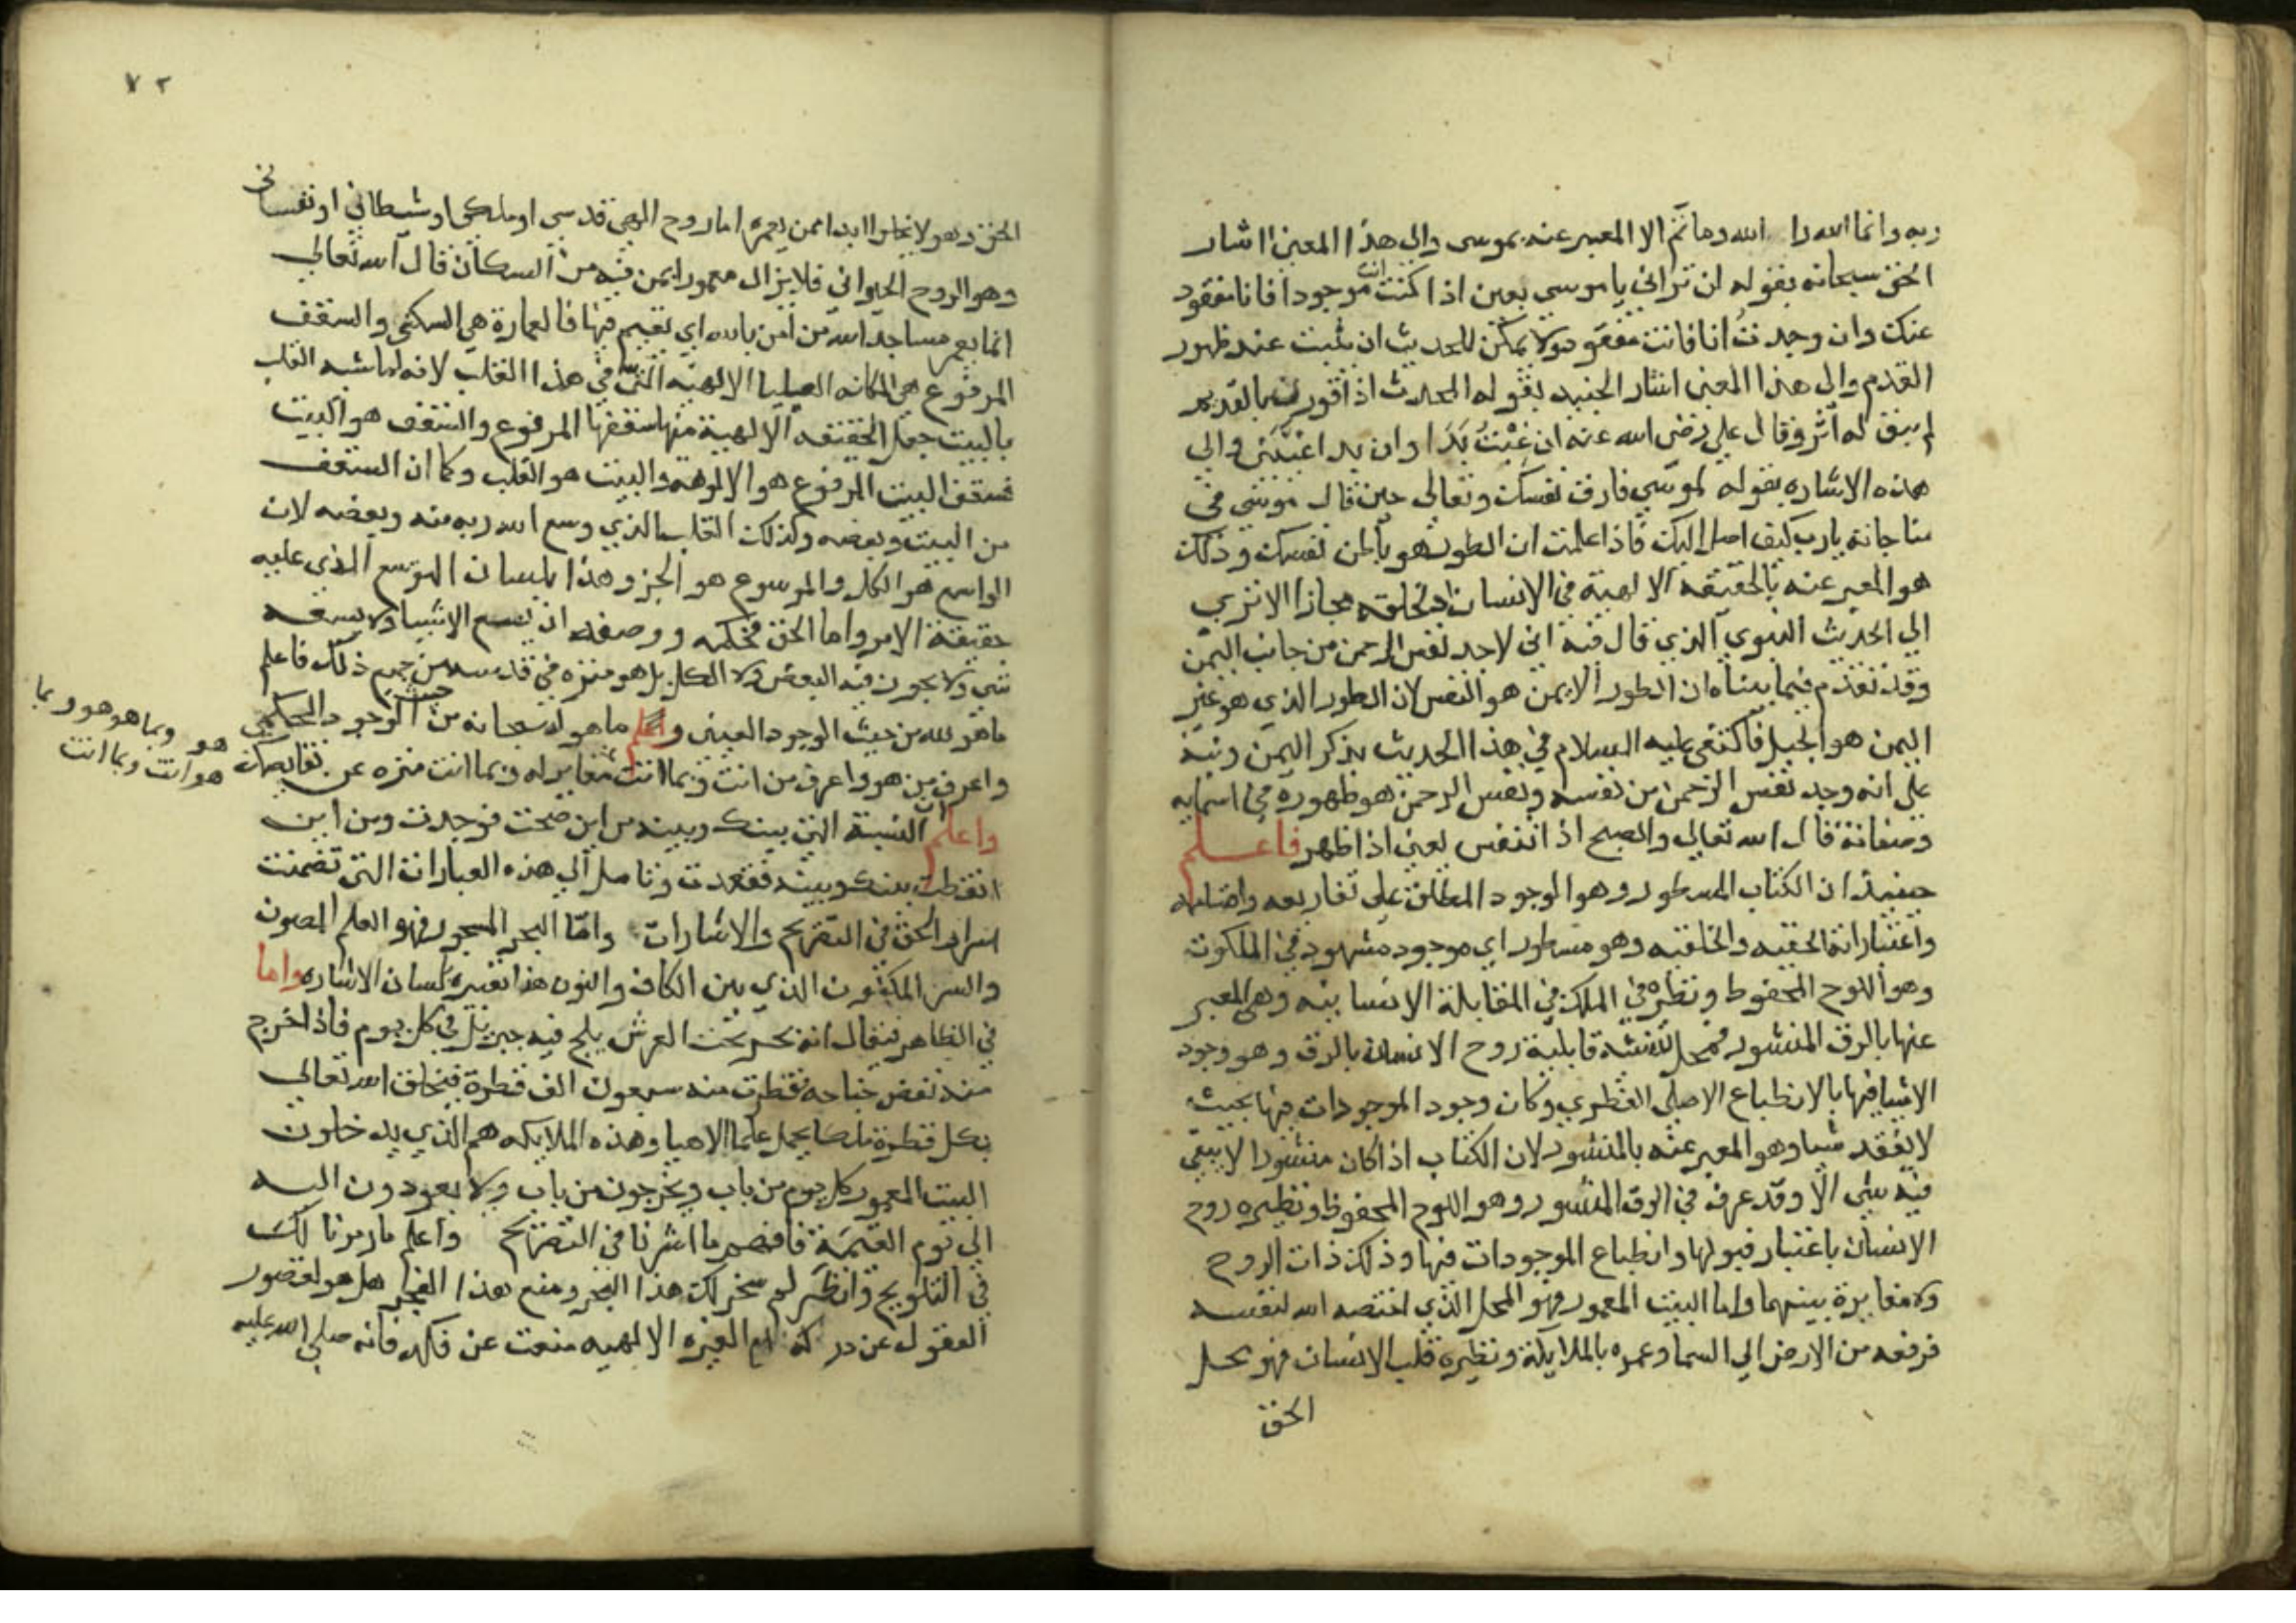 ربه وانما الله را الله وماثم الا المعبر عنه بموسى والى هذا المعنى اشار
الحق سبحانه بقوله لن ترانى يا موسى يعنى اذا كنت انت موجودا فانا مفقود
عنك وان وجدتُ انا فانت مفقود ولا يمكن للحديث ان يثبت عند ظهور
القدم والى هذا المعنى اشار الجنيد بقوله المحدث اذا قورن بالقديم
لم يبق له اثر وقال على رضى الله عنه ان غِبْتُ بَدَا وان بدا غيبنى والى
هذه الاشاره بقوله لموسى فارق نفسك وتعالى حين قال موسى فى
مناجاته يارب كيف اصل اليك فاذا علمت ان الطور هو باطن نفسك وذلك
هو المعبر عنه بالحقيقه الالهية فى الانسان اذ خلقه مجازا الا ترى
الى الحديث النبوى الذى قال فيه انى لاجد نفس الرحمن من جانب اليمن
وقد تقدم فيما بيناه ان الطور الايمن هو النفس لان الطور الذى هو غير
اليمن هو الجبل فاكتفى عليه السلام فى هذا الحديث بذكر اليمن ونبه
على انه وجد نفس الرحمن من نفسه ونفس الرحمن هو ظهوره فى اسمايه
وصفاته قال الله تعالى والصبح اذا تنفس يعنى اذا ظهر فاعلم
حينيذ ان الكتاب المسطور وهو الوجود المطلق على تفاريعه واقسامه
واعتباراته الحقيه والخلقيه وهو مسطور اى موجود مشهود فى الملكوت
وهو اللوح المحفوظ ونظيره فى الملك فى المقابلة الانسانيه وهى المعبر
عنها بالرق المنشور فمحل تشبيه قابلية روح الانسان بالرق وهو وجود
الاشيا فيها بالانطباع الاصلى الفطرى وكان وجود الموجودات فيها بحيث
لا يفقد شيا وهو المعبر عنه بالمنشور لان الكتاب اذا كان منشورا لا يبقى
فيه شى الا وقد عرف فى الرق المنشور وهو اللوح المحفوظ ونظيره روح
الانسان باعتبار قبولها وانطباع الموجودات فيها وذلك ذات الروح
ولا مغايرة بينهما واما البيت المعمور فهو المحل الذى اختصه الله لنفسه
فرفعه من الارض الى السما وعمره بالملايكة ونظيره قلب الانسان فهو محل
الحق
٧٢
الحق وهو لا يخلو ابدا ممن يعمره اما روح الهى قدسى او ملكى او شيطانى او نفسانى
وهو الروح الحيوانى فلا يزال معمورا بمن فيه من السكان قال الله تعالى
انما يعمر مساجد الله من امن بالله اى يقيم فيها فالعمارة هى السكنى والسقف
المرفوع هى المكانه العليا الالهيه التى فى هذا القلب لانه لما شبه القلب
بالبيت جعل الحقيقه الالهية منها سقفها المرفوع والسقف هو البيت
فسقف البيت المرفوع هو الالوهه والبيت هو القلب وكما ان السقف
من البيت وبعضه وكذلك القلب الذى وسع الله ربه منه وبعضه لان
الواسع هو الكل والموسوع هو الجزو وهذا بلسان التوسع الذى عليه
حقيقة الامر واما الحق فحكمه ووصفه ان يسع الاشيا ولا يسعه
شى ولا يجوز فيه البعض ولا الكل بل هو منزه فى قدسه من جميع ذلك فاعلم
ما هو لله من حيث الوجود العينى واعلم ما هو له سبحانه من حيث الوجود الحكمى
واعرف من هو واعرف من انت وبما انت مغاير له وبما انت منزه عن نقايصك
هو وبما هو هو وبما
هو انت وبما انت
واعلم ان النسبة التى بينك وبينه من اين صحت فوجدت ومن اين
انقطت بينك وبينه ففقدت وتامل الى هذه العبارات التى تضمنت
اسرار الحق فى التصريح والاشارات واما البحر المسجور فهو العلم المصون
والسر المكنون الذى بين الكاف والنون هذا تعبيره بلسان الاشاره واما
فى الظاهر فيقال انه بحر تحت العرش يلج فيه جبريل فى كل يوم فاذا خرج
منه نفض جناحه فقطرت منه سبعون الف قطرة فيخلق الله تعالى
بكل قطرة ملكا يحمل علما الاهيا وهذه الملايكه هم الذى يدخلون
البيت المعمور كل يوم من باب ويخرجون من باب ولا يعودون اليه
الى يوم القيمة فافهم ما اشرنا فى التصريح واعلم ما رمزنا لك
فى التلويح وانظر لم سخر لك هذا البحر ومنع هذا الفجر هل هو لقصور
العقول عن دركه ام الغيره الالهيه منعت عن فكه فانه صلى الله عليه